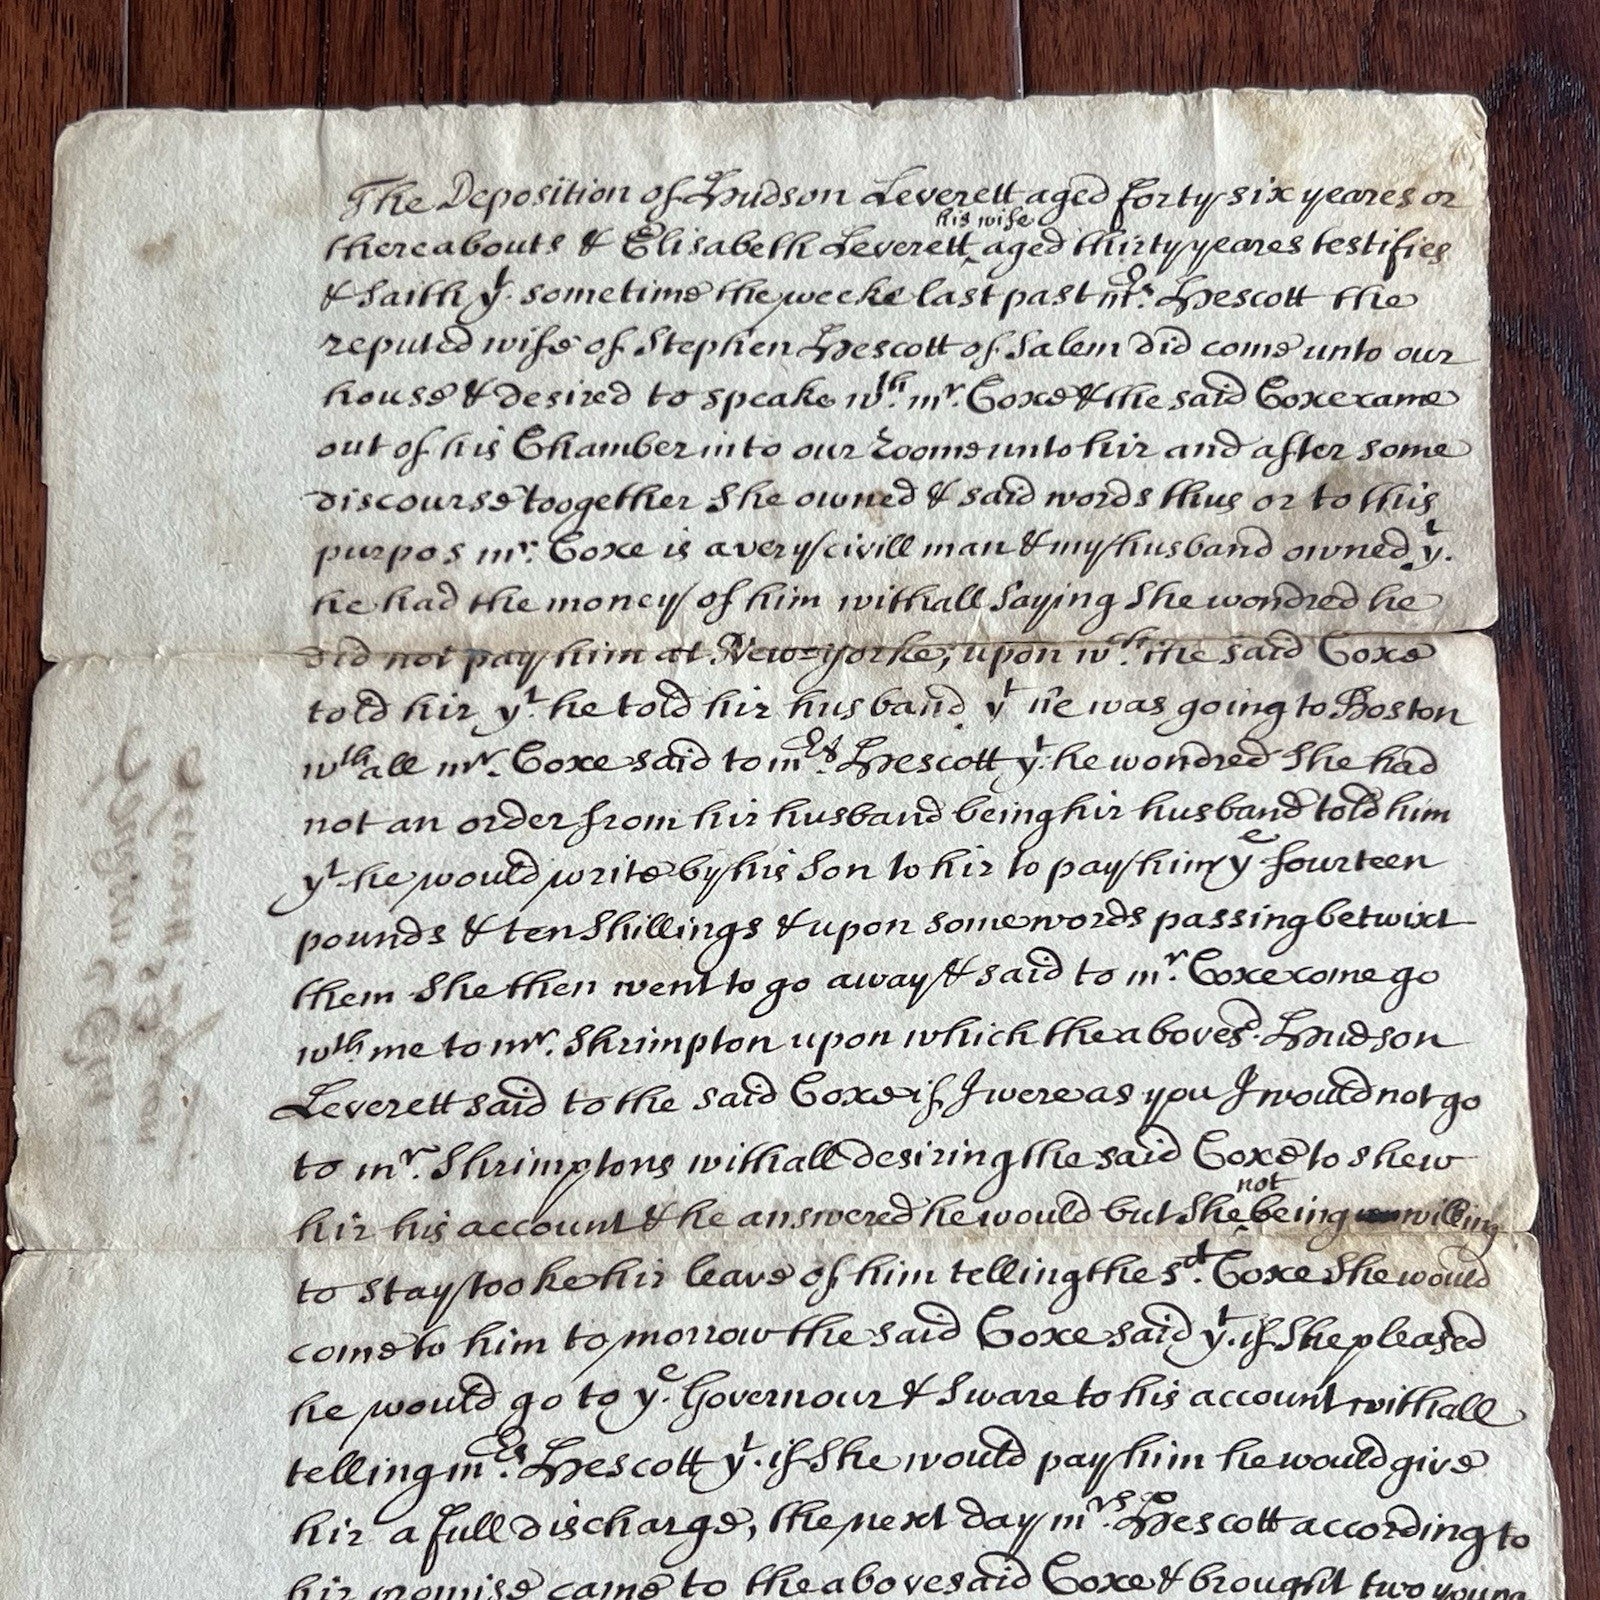 The Deposition of Hudson Leverett aged forty six yeares or
his wife
thereabouts & Elisabeth Leverett ‸ aged thirty yeares testifies
& Saith yt. sometime the weeke last past mrs. Hescott the
reputed wife of Stephen Hescott of Salem did come unto our
house & desired to speake wth. mr. Coxe & the said Coxe came
out of his Chamber into our Roome unto hir and after some
discourse toogether She owned & said words thus or to this
purpos mr. Coxe is a very civill man & my husband owned yt.
he had the money of him withall Saying She wondred he
did not pay him at New=yorke, upon wch. the said Coxe
told hir yt. he told hir husband yt he was going to Boston
wthall mr. Coxe said to mrs. Hescott yt. he wondred She had
not an order from hir husband being hir husband told him
yt. he would write by his Son to hir to pay him ye. fourteen
pounds & ten Shillings & upon some words passing betwixt
them She then went to go away & said to mr. Coxe come go
wth me to mr. Shrimpton upon which the aboves.d Hudson
Leverett said to the said Coxe if I were as you I would not go
to mr. Shrimptons withall desiring the said Coxe to shew
not
hir his account & he answered he would but She ‸ being willing
to stay tooke hir leave of him telling the sd. Coxe She would
come to him to morrow the said Coxe said yt. if She pleased
he would go to ye. Governour & Sware to his account withall
telling mrs. Hescott yt. if She would pay him he would give
hir a full discharge, the next day mrs. Hescott according to
hir promise came to the abovesaid Coxe & brought two young